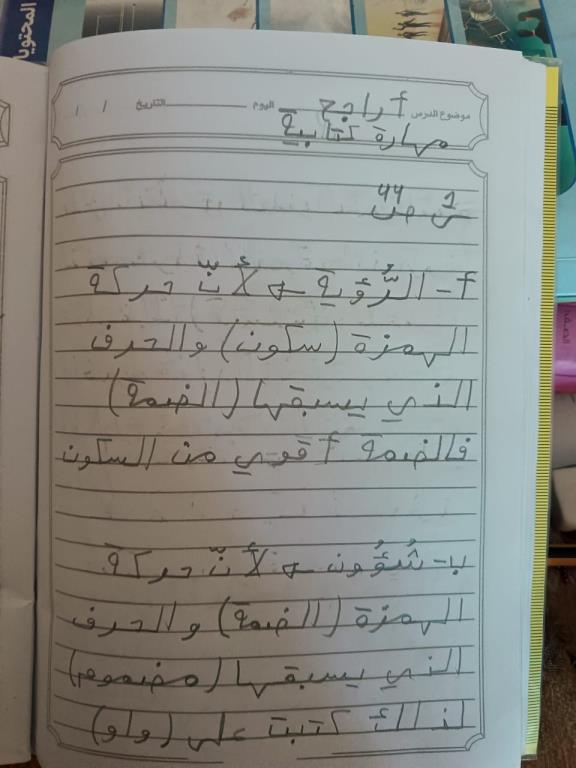 المحتويات
موضوع الدرس أراجع اليوم التاريخ / /
مهارة كتابية
س1 ص44
أ- الرُّؤية ← لأنّ حركة
الهمزة (سكون) والحرف
الذي يسبقها (الضمة)
فالضمة أقوي من السكون
ب- شُؤُون ← لأنّ حركة
الهمزة (الضمة) والحرف
الذي يسبقها (مضموم)
لذالك كتبت على (واو)